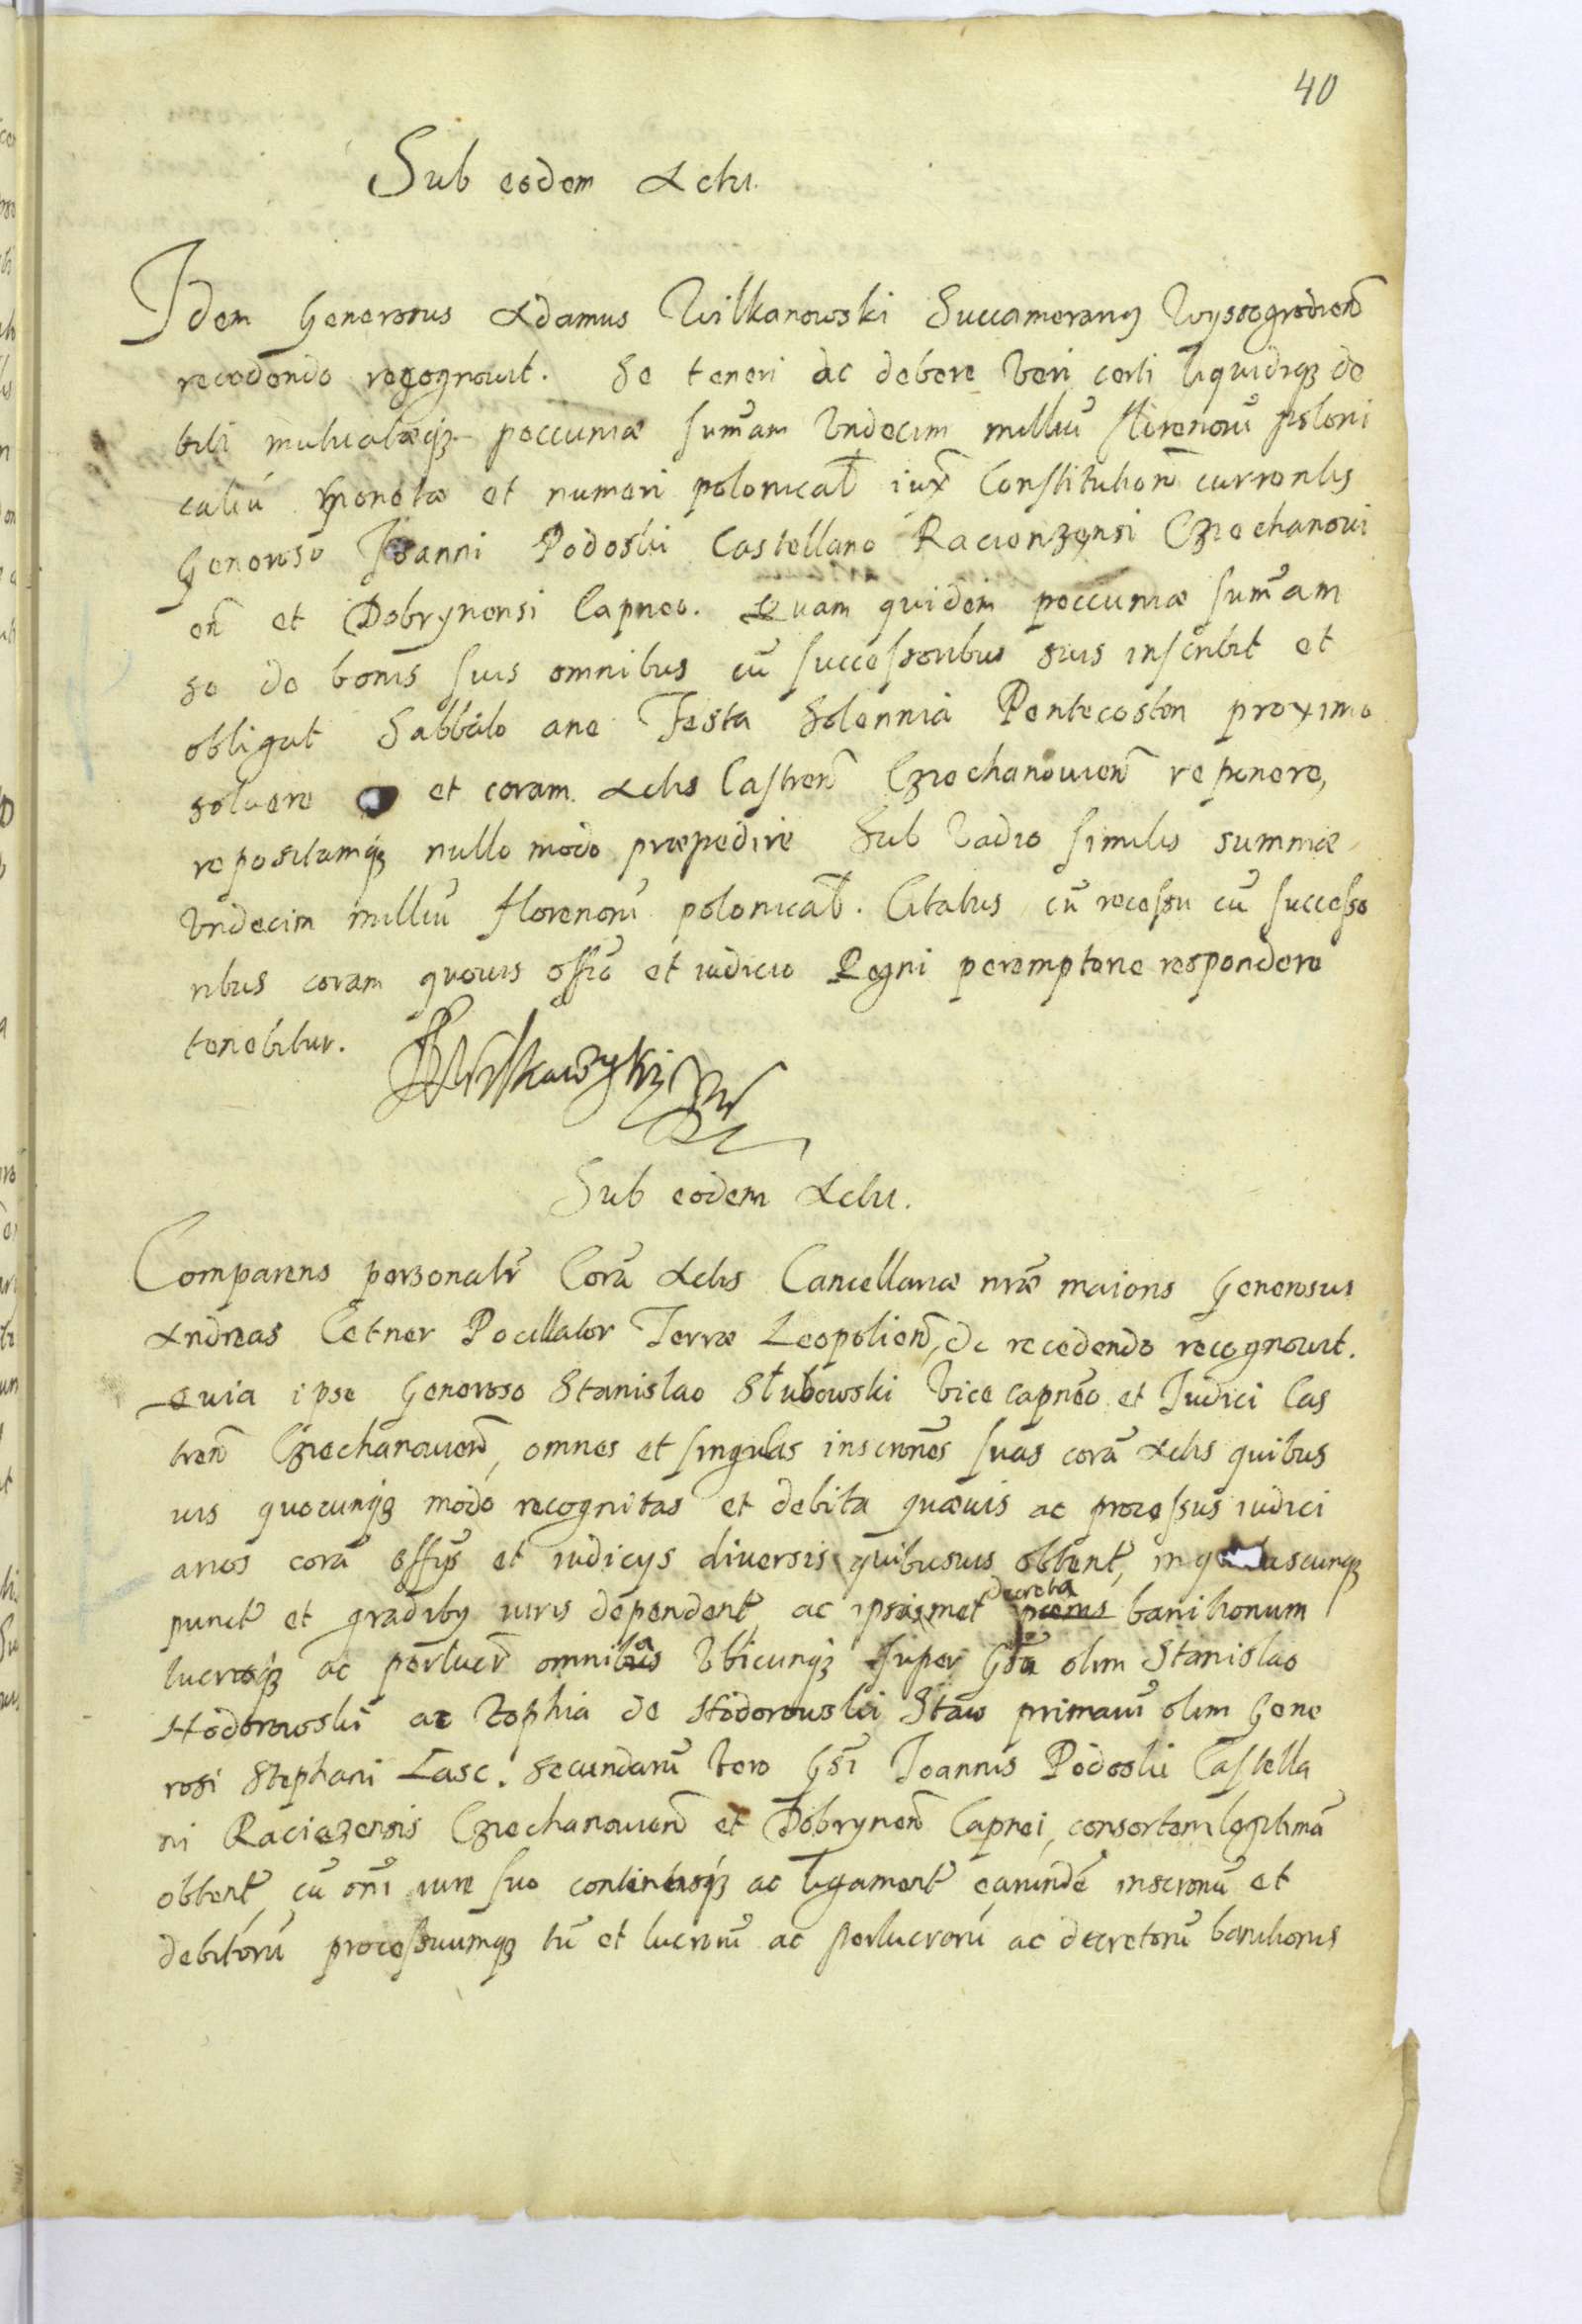 40
Sub eodem Actu.
Idem Generosus Adamus Wilkanowski Succamerarius Wyssogrodien̄
recedendo recognouit. Se teneri ac debere veri certi liquidiqȝ de
biti mutuatæqȝ peccuniæ sum̄am Vndecim milliū florenorū poloni
caliū monetæ et numeri polonical iux̄ Constitution̄ currentis
Generoso Joanni Podoski Castellano Racienzensi Czechanoui
en̄ et Dobrynensi Capneo. Quam quidem peccuniæ sum̄am
se de bonis suis omnibus cū successoribus suis inscribit et
obligat Sabbato ane Festa Solennia Pentecosten proxime
soluere et coram Actis Castren̄ Czechanouien̄ reponere,
repositamqȝ nullo modo præpedire Sub Vadio similis summæ
Vndecim milliū florenorū polonical. Citatus cū recessu cū successo
ribus coram quouis offō et iudicio Regni peremptorie respondere
tenebitur.
Sub eodem Actu.
Comparens personalr̄ Corā Actis Cancellariæ nr̄æ maioris Generosus
Andreas Cetner Pocillator Terræ Leopolien̄, de recedendo recognouit.
Quia ipse Generoso Stanislao Słubowski Vice capnēo et Judici Cas
tren̄ Czechanouien̄, omnes et singulas inscrnēs suas corā Actis quibus
uis quocunqȝ modo recognitas et debita quæuis ac processus iudici
arios corā offys et iudicys diuersis quibusuis obtent̄, in scunqȝ
punct̄ et gradibȝ iuris dependent̄, ac ipsasmet decreta banitionum
lucraqȝ ac perlucr̄ omnia Vbicunqȝ super Gsō olim Stanislao
Hodorowski ac Zophia de Hodorowski Staw primarū olim Gene
rosi Stephani Lasc. secundarū vero Gsī Joannis Podoski Castella
ni Raciazensis Czechanouien̄ et Dobrynen̄ Capnei, consortem legitimā
obtent̄, cū onī iure suo contentisqȝ ac ligament̄ earundē inscronū et
debitorū processuumqȝ tū et lucrorū ac perlucrorū ac decretorū banitionis